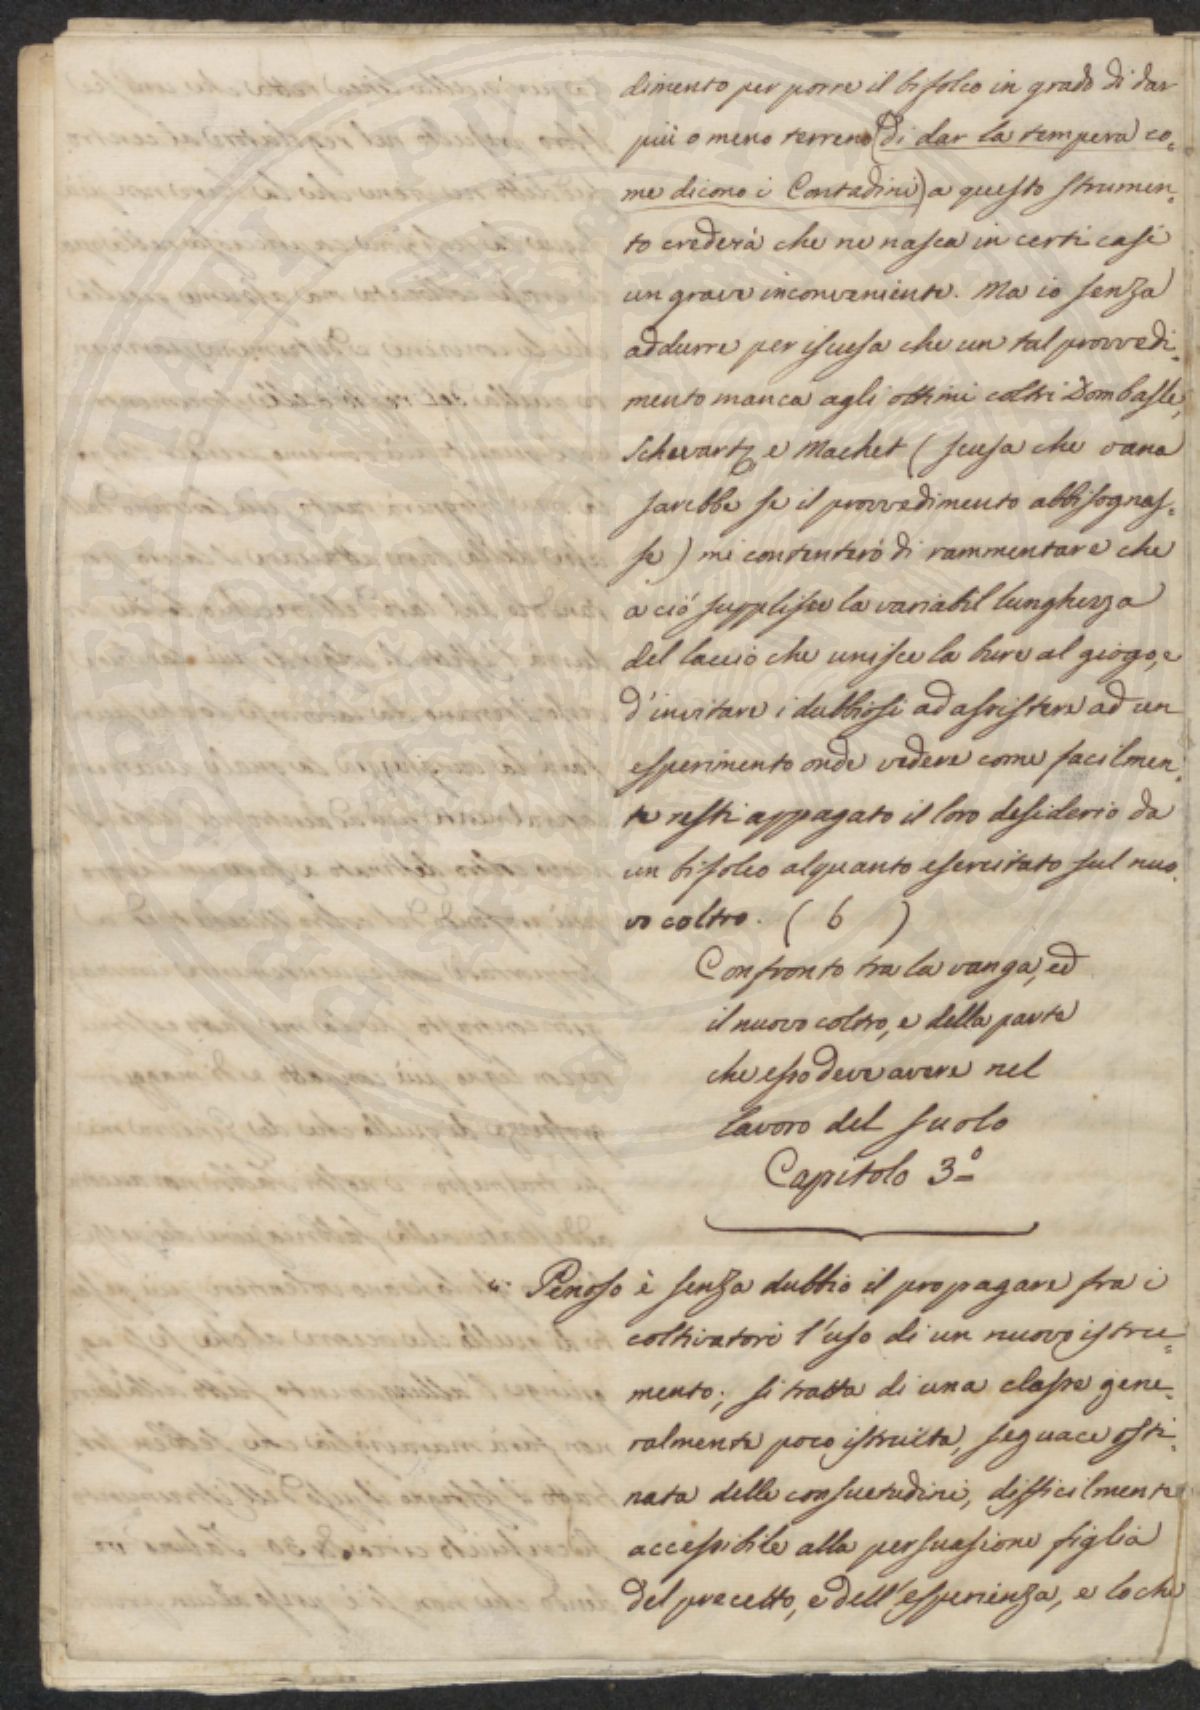 dimento per porre il bifolco in grado di dar
più o meno terreno (di dar la tempera co=
me dicono i Contadini) a questo strumen=
to crederà che ne nasca in certi casi
un grave inconveniente. Ma io senza
addurre per iscusa che un tal provvedi=
mento manca agli ottimi coltri Dombasle,
Schwartz e Machet (scusa che vana
sarebbe se il provvedimento abbisognas=
se) mi contenterò di rammentare che
a ciò supplisce la variabil lunghezza
del laccio che unisce la bure al giogo, e
d'invitare i dubbiosi ad assistere ad un
esperimento onde vedere come facilmen=
te resti appagato il loro desiderio da
un bifolco alquanto esercitato sul nuo=
vo coltro. ( 6 )
Confronto tra la vanga, ed
il nuovo coltro, e della parte
che esso deve avere nel
lavoro del suolo
Capitolo 3º
Penoso è senza dubbio il propagare fra i
coltivatori l'uso di un nuovo istru=
mento; si tratta di una classe gene=
ralmente poco istruita, seguace osti=
nata delle consuetudini, difficilmente
accessibile alla persuasione figlia
del precetto, e dell'esperienza, e loche